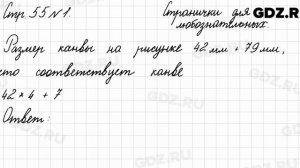 Стр. 55 № 1.
Странички для
любознательных.
GDZ.RU
Размер канвы на рисунке 42 мм + 79 мм,
что соответствует канве
42 × 4 + 7
Ответ: